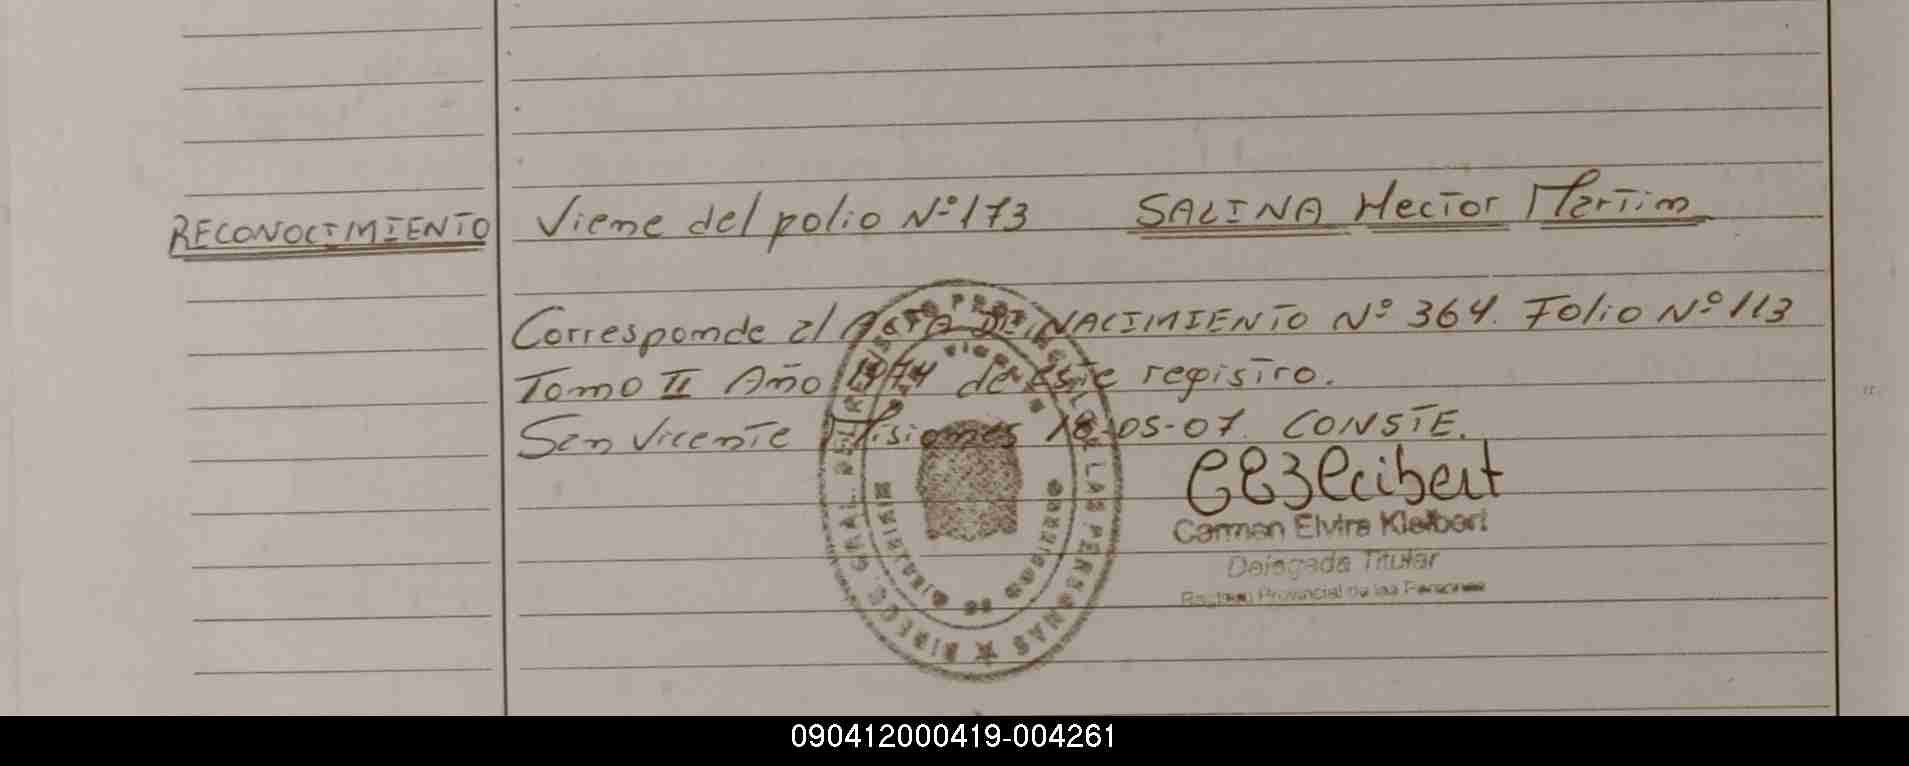 RECONOCIMIENTO
Viene del folio Nº 173 SALINA Hector Martin
Corresponde al ACTA DE NACIMIENTO Nº 364. Folio Nº 113
Tomo II Año 1974 de este registro.
San Vicente Misiones 18-05-07. CONSTE.
Carmen Elvira Kleibert
Delegada Titular
Registro Provincial de las Personas
DIRECC. GRAL. DEL REGISTRO PROVINCIAL DE LAS PERSONAS
090412000419-004261